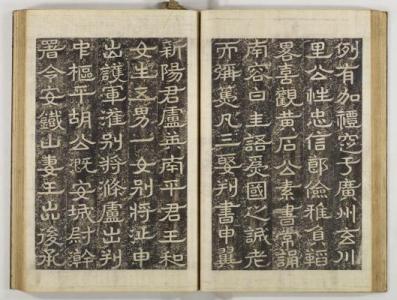 例有加禮窆于廣州玄川
里公性忠信節儉雅負韜
畧喜觀黃石公素書常誦
南容白圭語憂國之誠老
而彌篤凡三娶判書申翼
新陽君盧英南平君王和
女生五男一女別將正申
出護軍別將滌盧出判
中樞平胡公安城尉幹
署令安鐵山妻王出後承